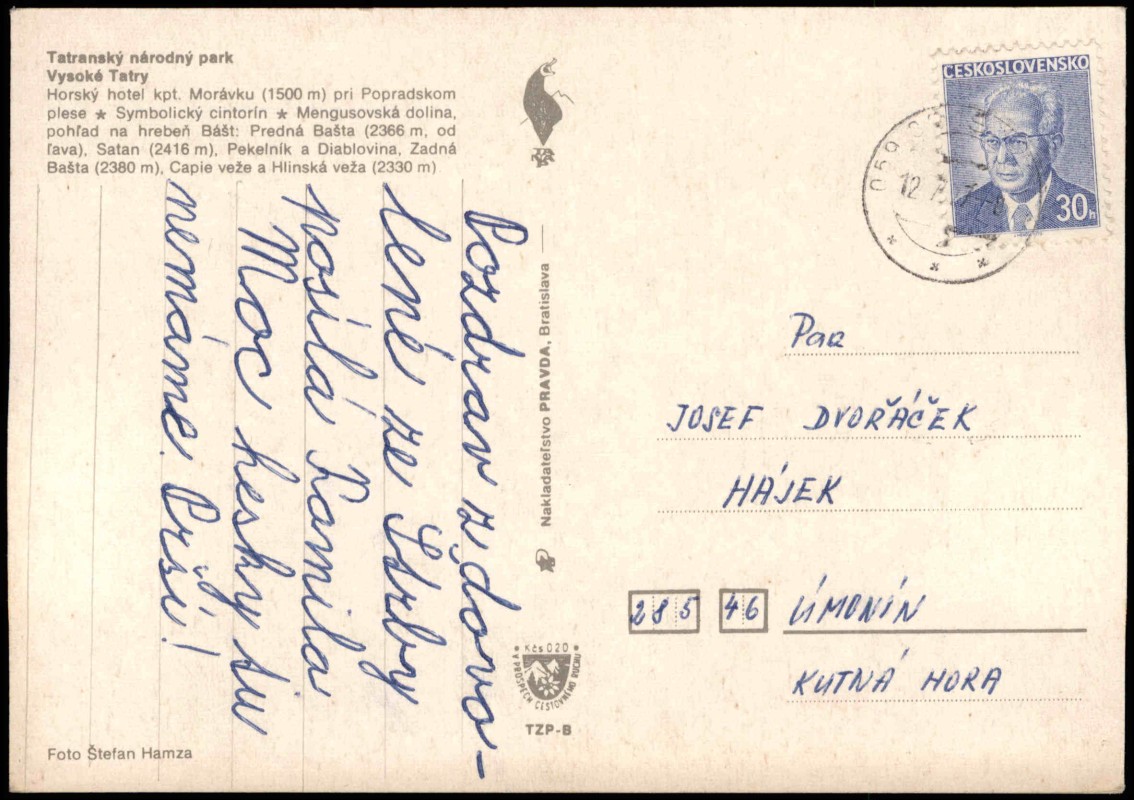 Tatranský národný park
Vysoké Tatry
Horský hotel kpt. Morávku (1500 m) pri Popradskom
plese ★ Symbolický cintorín ★ Mengusovská dolina,
pohľad na hrebeň Bášt: Predná Bašta (2366 m, od
ľava), Satan (2416 m), Pekelník a Diablovina, Zadná
Bašta (2380 m), Capie veže a Hlinská veža (2330 m)
Pozdrav z dovo-
lené ze Štrby
posílá Kamila
Moc hesky tu
nemáme. Prší!
Foto Štefan Hamza
Nakladateľstvo PRAVDA, Bratislava
Kčs 020
V PROSPECH CESTOVNÉHO RUCHU
TZP-B
ČESKOSLOVENSKO
30h
059
12
Pan
JOSEF DVOŘÁČEK
HÁJEK
285 46 ÚMONÍN
KUTNÁ HORA